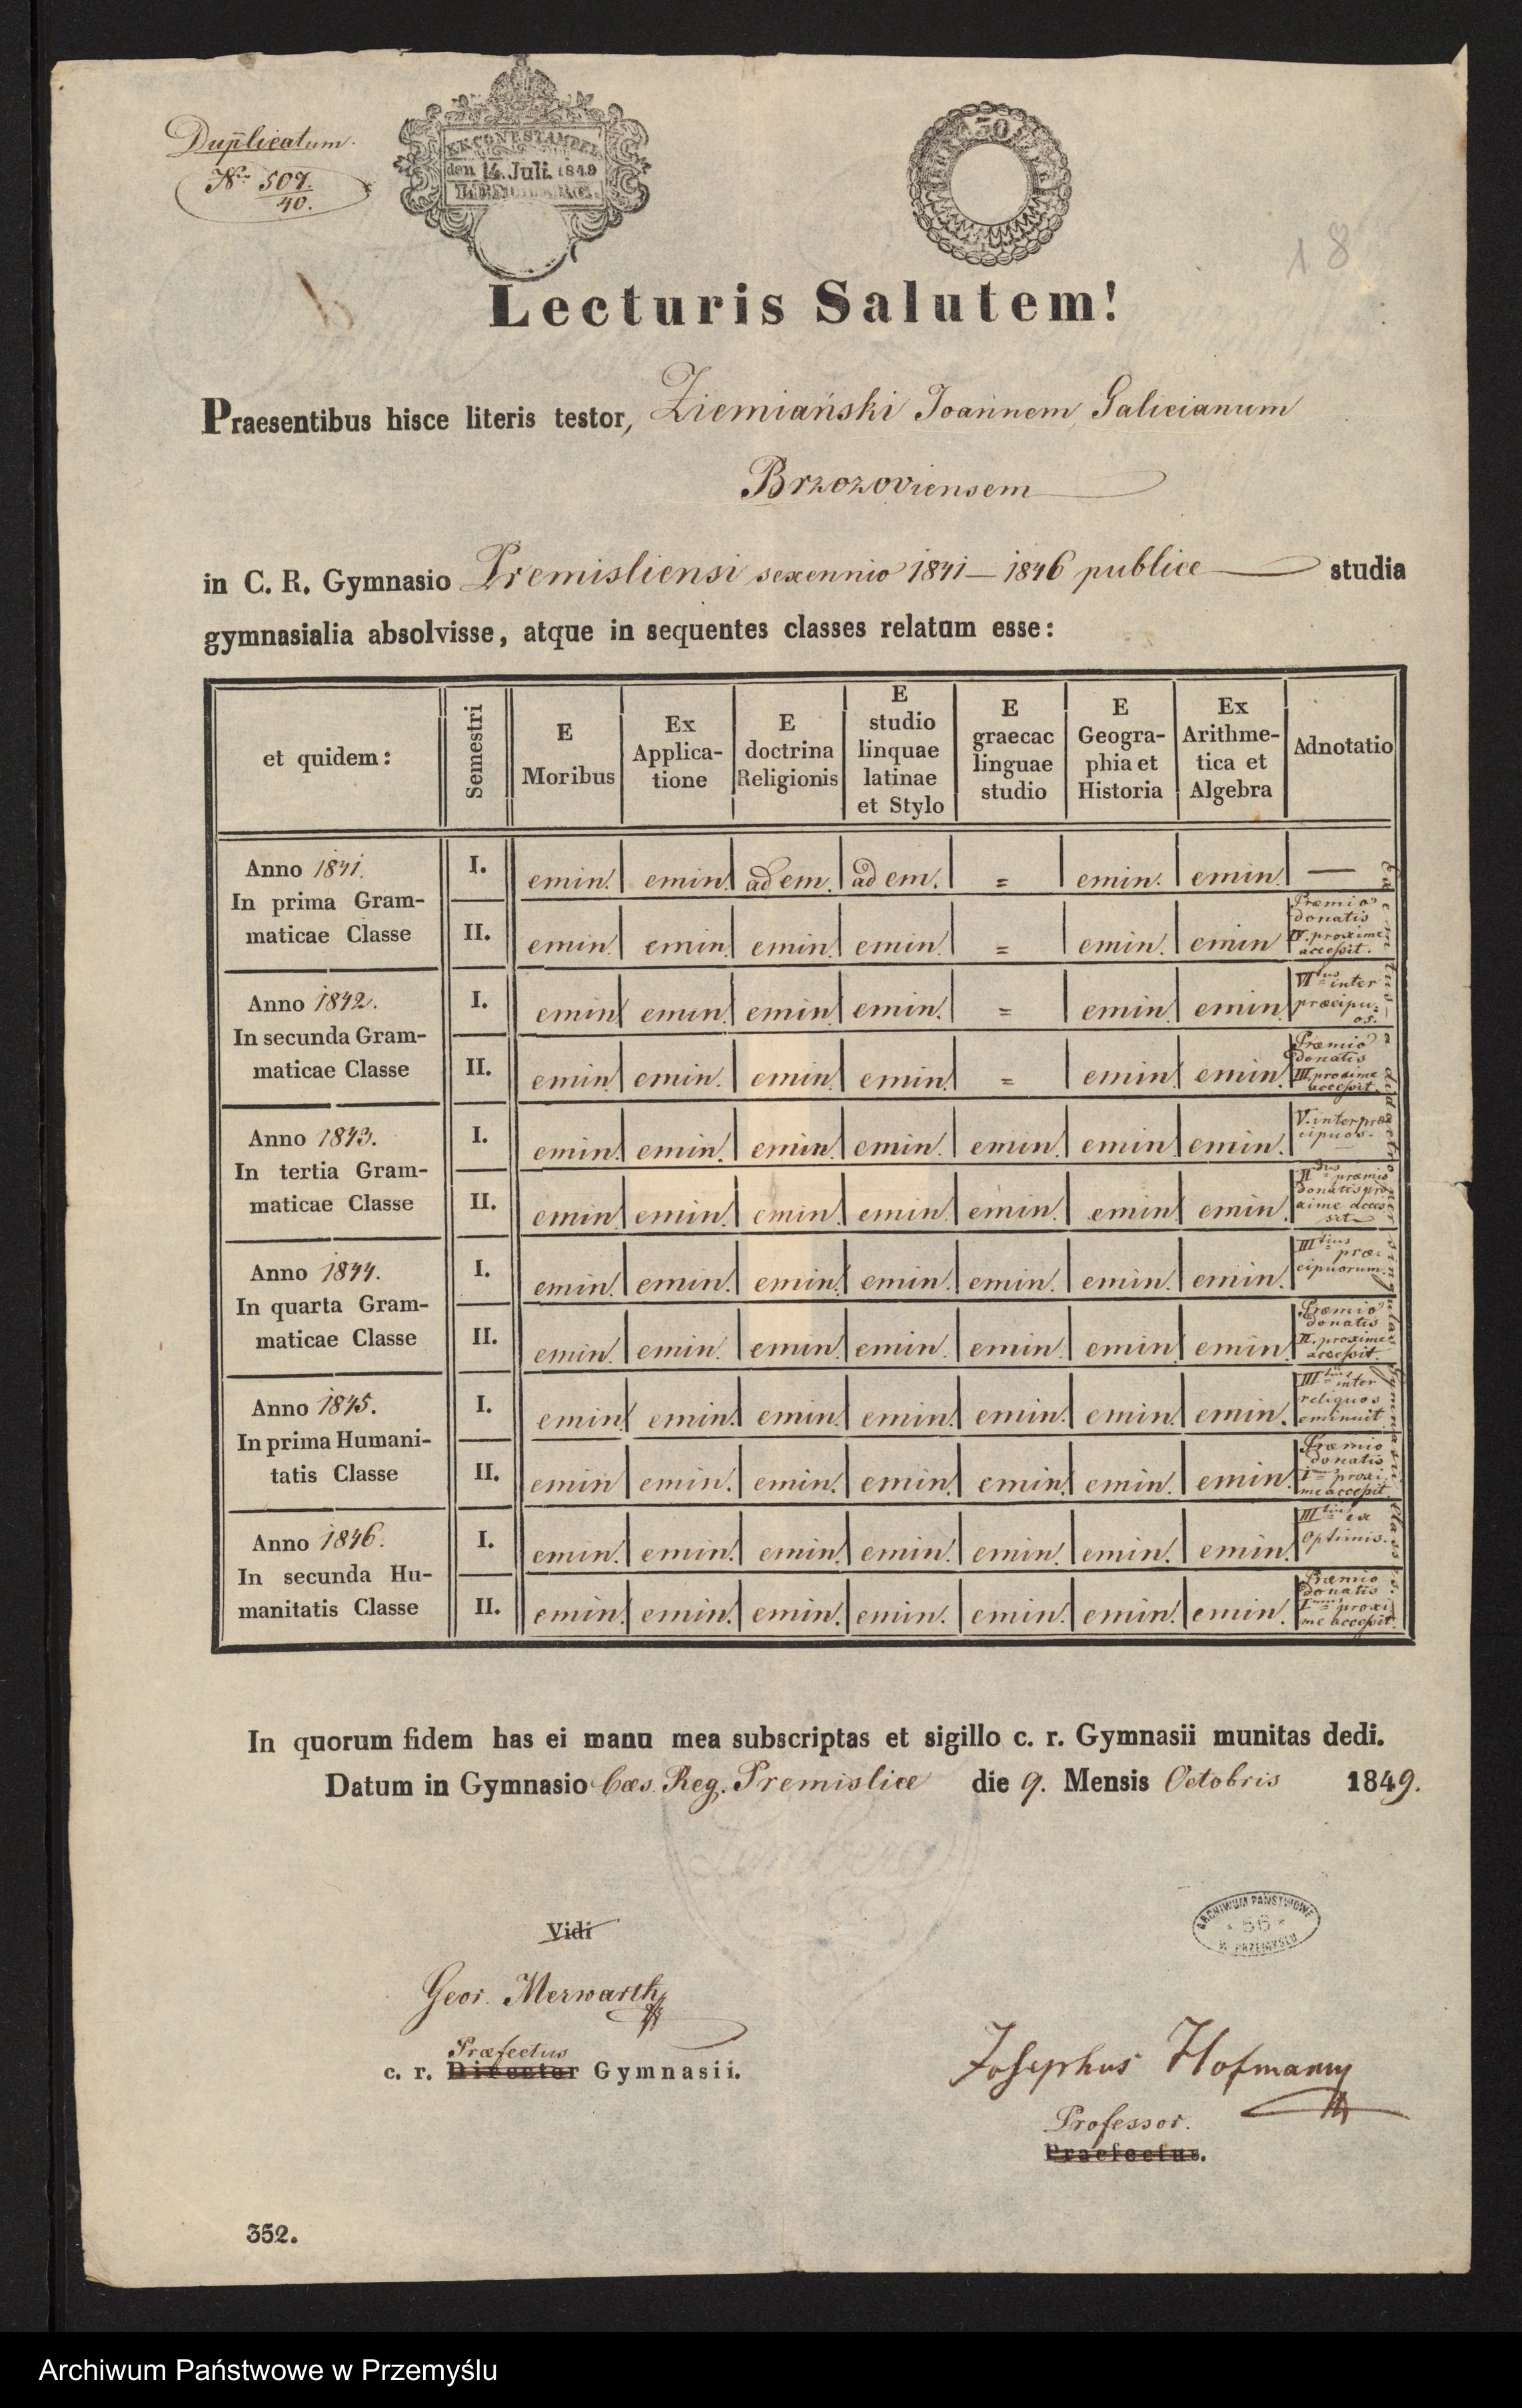 Duplicatum.
No 507.
40.
den 14. Juli. 1849
30
18
Lecturis Salutem!
Praesentibus hisce literis testor, Ziemiański Joannem, Galicianum
Brzozoviensem
in C. R. Gymnasio Premisliensi sexennio 1841–1846 publice studia
gymnasialia absolvisse, atque in sequentes classes relatum esse:
et quidem: Semestri E Moribus Ex Applica-tione E doctrina Religionis E studio linquae latinae et Stylo E graecac linguae studio E Geogra-phia et Historia Ex Arithme-tica et Algebra Adnotatio
Anno 1841. In prima Gram-maticae Classe
I. emin. emin. ad em. ad em. = emin. emin. —
II. emin. emin. emin. emin. = emin. emin Præmio donatis IV. proxime accessit.
Anno 1842. In secunda Gram-maticae Classe
I. emin. emin. emin. emin. = emin. emin. VItus inter præcipu-os.
II. emin. emin. emin. emin. = emin. emin. Præmio donatis III. proxime accessit.
Anno 1843. In tertia Gram-maticae Classe
I. emin. emin. emin. emin. emin. emin. emin. V. inter præcipuos.
II. emin. emin. emin. emin. emin. emin. emin. IIdus præmio donatis proxime accessit
Anno 1844. In quarta Gram-maticae Classe
I. emin. emin. emin. emin. emin. emin. emin. IIItius præ-cipuorum.
II. emin. emin. emin. emin. emin. emin. emin. Præmio donatis II. proxime accessit.
Anno 1845. In prima Humani-tatis Classe
I. emin. emin. emin. emin. emin. emin. emin. IIItius inter reliquos eminuit
II. emin emin. emin. emin. emin. emin. emin. Præmio donatis Imus proxime accessit.
Anno 1846. In secunda Hu-manitatis Classe
I. emin. emin. emin. emin. emin. emin. emin. IIItius ex optimis.
II. emin. emin. emin. emin. emin. emin. emin. Præmio donatis Imus proxime accessit.
In quorum fidem has ei manu mea subscriptas et sigillo c. r. Gymnasii munitas dedi.
Datum in Gymnasio Cæs. Reg. Premisliæ die 9. Mensis Octobris 1849.
ARCHIWUM PAŃSTWOWE
56
W PRZEMYŚLU
Vidi
Geor. Merwarth
Præfectus
c. r. Director Gymnasii.
Josephus Hofmann
Professor.
Praefectus.
352.
Archiwum Państwowe w Przemyślu